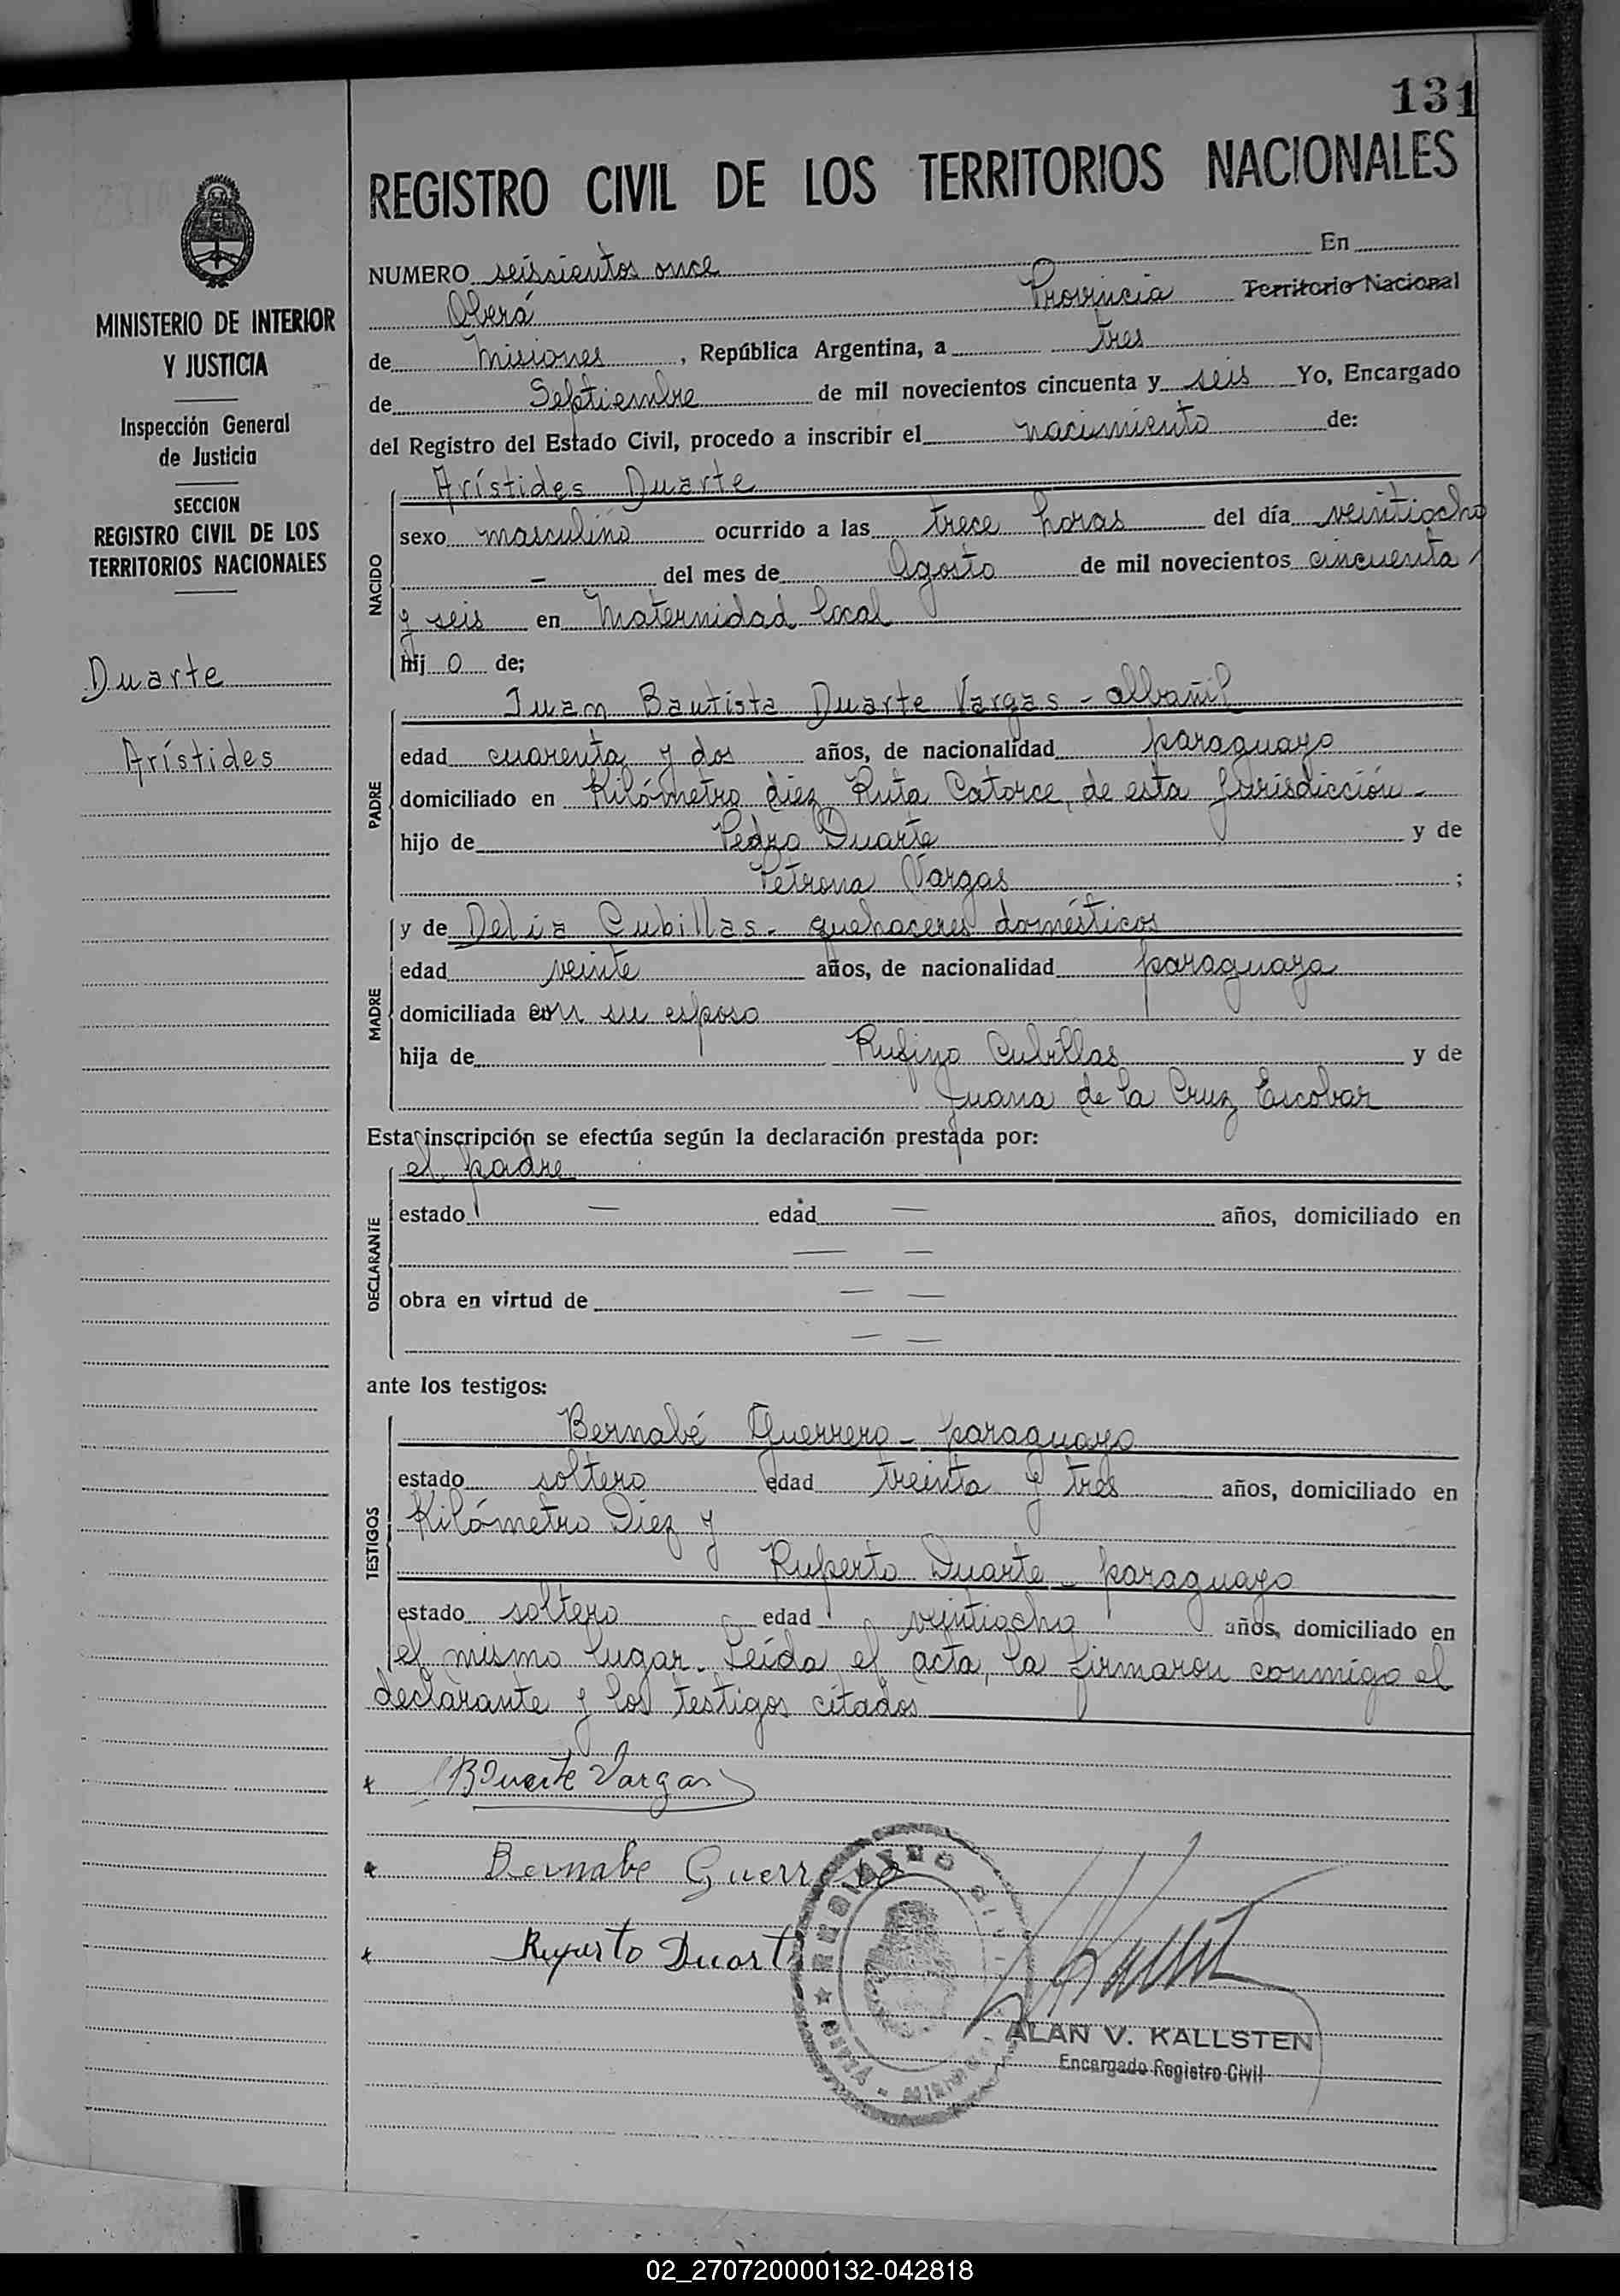 131
REGISTRO CIVIL DE LOS TERRITORIOS NACIONALES
MINISTERIO DE INTERIOR
Y JUSTICIA
Inspección General
de Justicia
SECCION
REGISTRO CIVIL DE LOS
TERRITORIOS NACIONALES
Duarte
Arístides
NUMERO seiscientos once En
Oberá Provincia Territorio Nacional
de Misiones, República Argentina, a tres
de Septiembre de mil novecientos cincuenta y seis Yo, Encargado
del Registro del Estado Civil, procedo a inscribir el nacimiento de:
NACIDO
Arístides Duarte
sexo masculino ocurrido a las trece horas del día veintiocho
— del mes de Agosto de mil novecientos cincuenta
y seis en Maternidad local
hij o de;
PADRE
Juan Bautista Duarte Vargas - albañil
edad cuarenta y dos años, de nacionalidad paraguayo
domiciliado en Kilómetro diez, Ruta Catorce, de esta jurisdicción -
hijo de Pedro Duarte y de
Petrona Vargas ;
MADRE
y de Delia Cubillas - quehaceres domésticos
edad veinte años, de nacionalidad paraguaya
domiciliada con su esposo
hija de Rufino Cubillas y de
Juana de la Cruz Escobar
Esta inscripción se efectúa según la declaración prestada por:
DECLARANTE
el padre
estado — edad — años, domiciliado en
— —
obra en virtud de — —
— —
ante los testigos:
TESTIGOS
Bernabé Guerrero - paraguayo
estado soltero edad treinta y tres años, domiciliado en
Kilómetro Diez y
Ruperto Duarte - paraguayo
estado soltero edad veintiocho años, domiciliado en
el mismo lugar. Leída el acta, la firmaron conmigo el
declarante y los testigos citados
BDuarte Vargas
Bernabe Guerrero
Ruperto Duarte
REGISTRO CIVIL
OBERA - MISIONES
ALAN V. KALLSTEN
Encargado Registro Civil
02_270720000132-042818